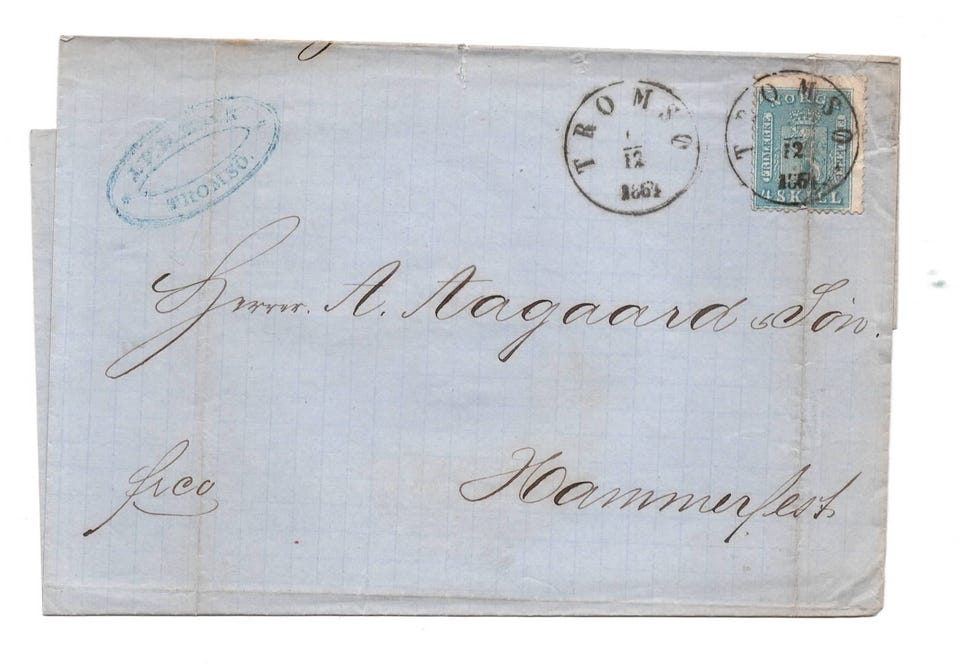 TROMSØ
12
1864
TROMSØ
12
1864
NORGE
FRIMÆRKE
4 SKILL
TROMSÖ.
Herrer. A. Aagaard & Søn.
frco
Hammerfest